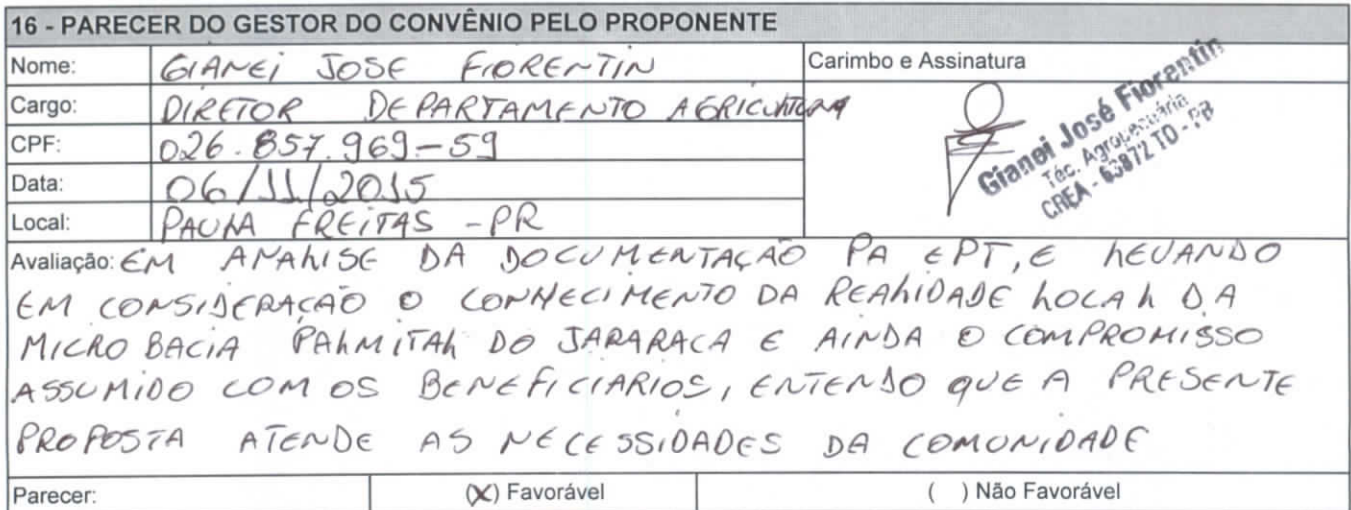 16 - PARECER DO GESTOR DO CONVÊNIO PELO PROPONENTE
Nome: GIANEI JOSE FIORENTIN
Carimbo e Assinatura
Cargo: DIRETOR DEPARTAMENTO AGRICULTURA
CPF: 026.857.969-59
Data: 06/11/2015
Local: PAULA FREITAS - PR
Gianei José Fiorentin
Téc. Agropecuária
CREA - 63872 TD - PR
Avaliação: EM ANALISE DA DOCUMENTAÇÃO DA EPT, E LEVANDO
EM CONSIDERAÇÃO O CONHECIMENTO DA REALIDADE LOCAL DA
MICRO BACIA PALMITAL DO JARARACA E AINDA O COMPROMISSO
ASSUMIDO COM OS BENEFICIARIOS, ENTENDO QUE A PRESENTE
PROPOSTA ATENDE AS NECESSIDADES DA COMUNIDADE
Parecer: (X) Favorável ( ) Não Favorável